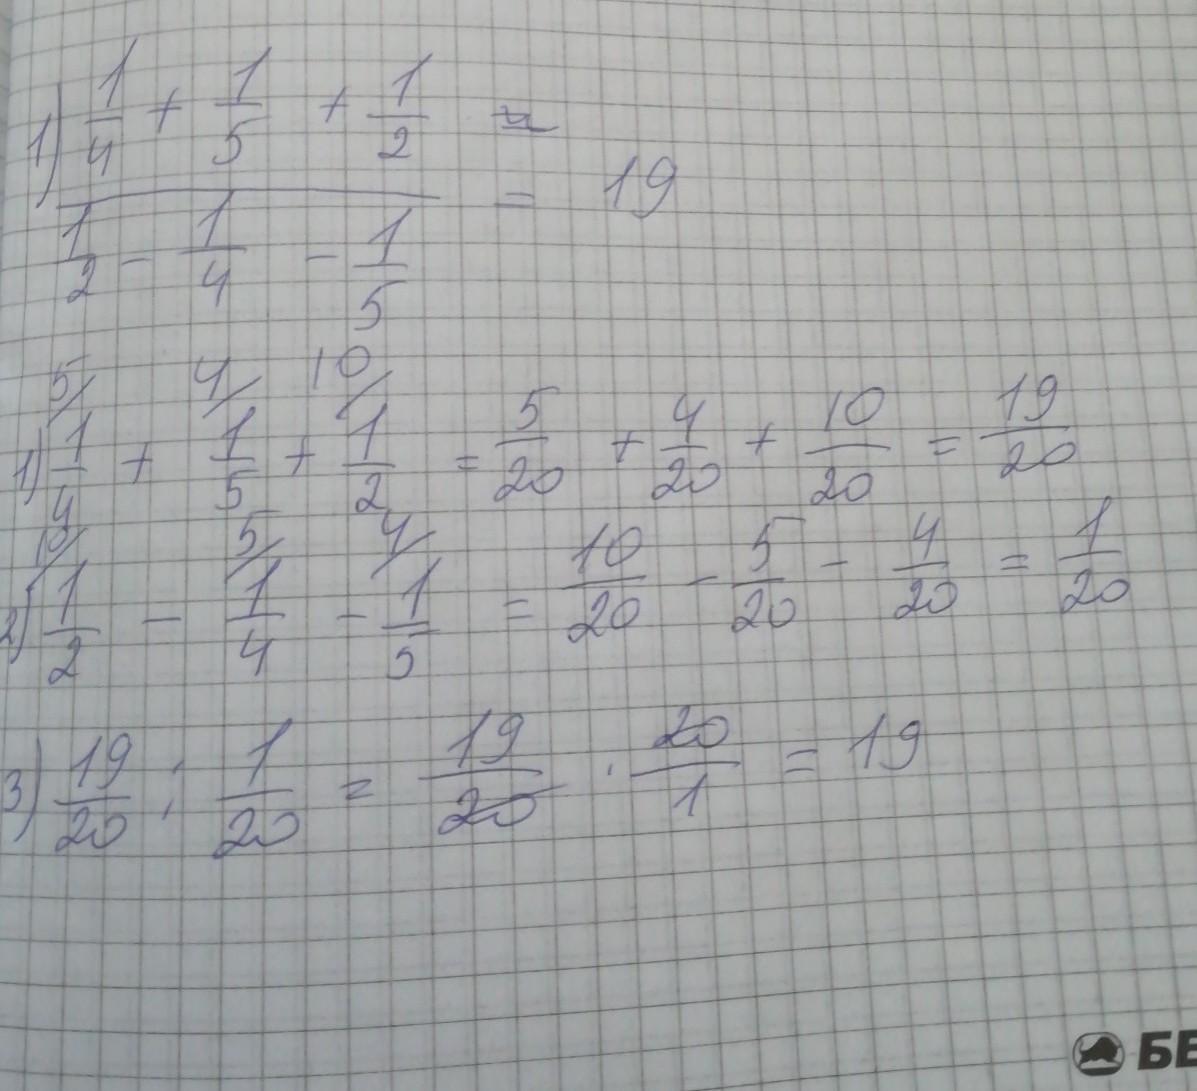 1) 1/4 + 1/5 + 1/2
1/2 - 1/4 - 1/5 = 19
5/ 4/ 10/
1) 1/4 + 1/5 + 1/2 = 5/20 + 4/20 + 10/20 = 19/20
10/ 5/ 4/
2) 1/2 - 1/4 - 1/5 = 10/20 - 5/20 - 4/20 = 1/20
3) 19/20 : 1/20 = 19/20 · 20/1 = 19
БЕ